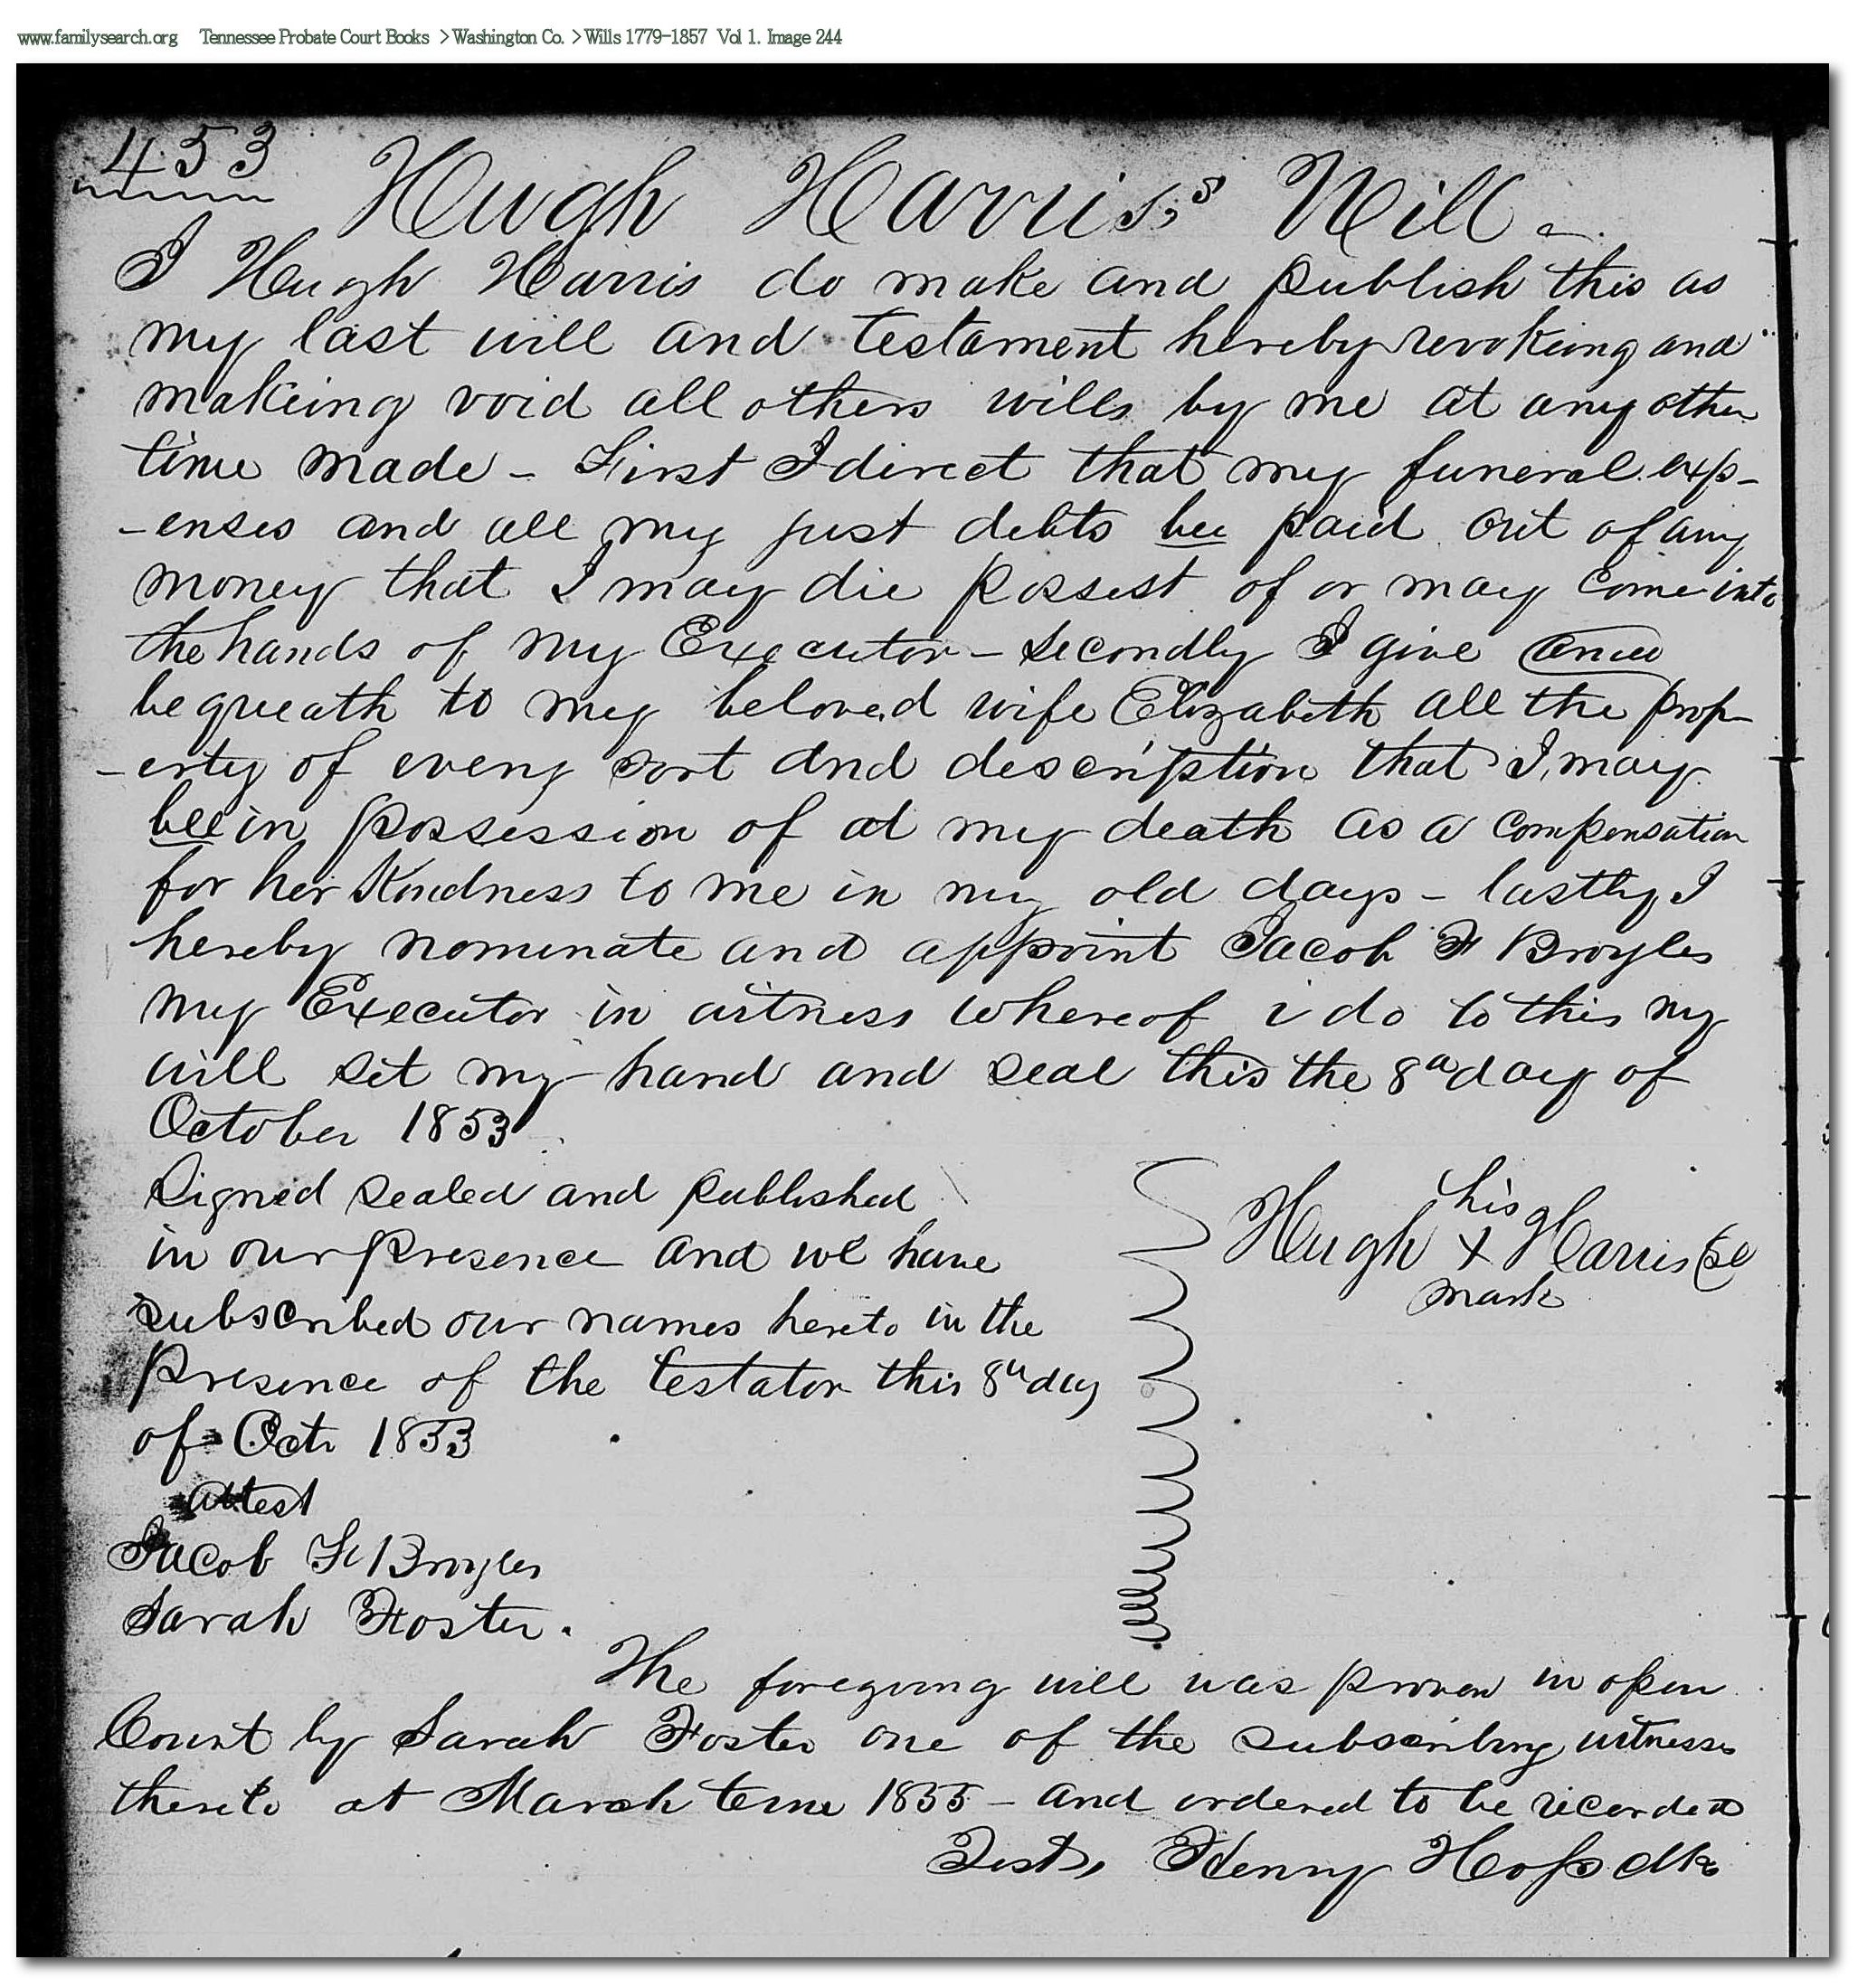 www.familysearch.org Tennessee Probate Court Books > Washington Co. > Wills 1779-1857 Vol 1. Image 244
453
Hugh Harris,s Will -
I Hugh Harris do make and publish this as
my last will and testament hereby revokeing and
makeing void all others wills by me at any other
time made - First I direct that my funeral exp-
-enses and all my just debts bee paid out of any
money that I may die possest of or may come into
the hands of my Executor - secondly I give and
bequeath to my beloved wife Elizabeth all the prop-
-erty of every sort and description that I may
bee in possession of at my death as a compensation
for her Kindness to me in my old days - lastly I
hereby nominate and appoint Jacob F Broyles
my Executor in witness whereof i do to this my
will set my hand and seal this the 8th day of
October 1853
Signed sealed and published
in our presence and we have
subscribed our names hereto in the
presence of the testator this 8th day
of Oct. 1853
attest
Jacob F Broyles
Sarah Foster.
his
Hugh + Harris (se
mark
The foregoing will was proven in open
Court by Sarah Foster one of the subscribing witnesses
thereto at March term 1855 - and ordered to be recorded
Test, Henny Hoss Clk